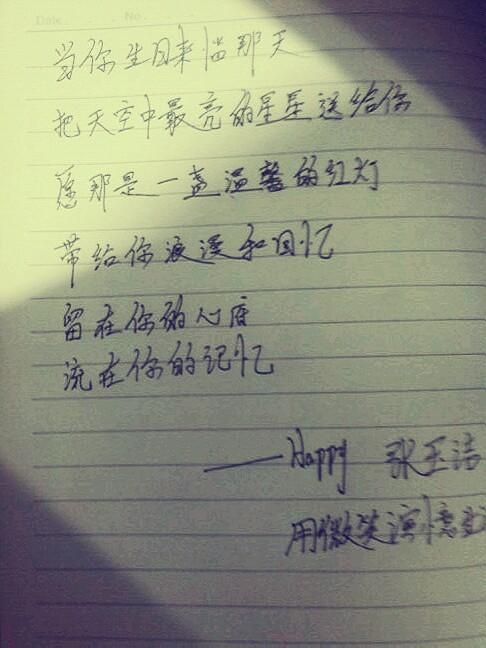 Date No.
当你生日来临那天
把天空中最亮的星星送给你
愿那是一盏温馨的红灯
带给你浪漫和回忆
留在你的心底
流在你的记忆
——Happy 张玉洁
用微笑演